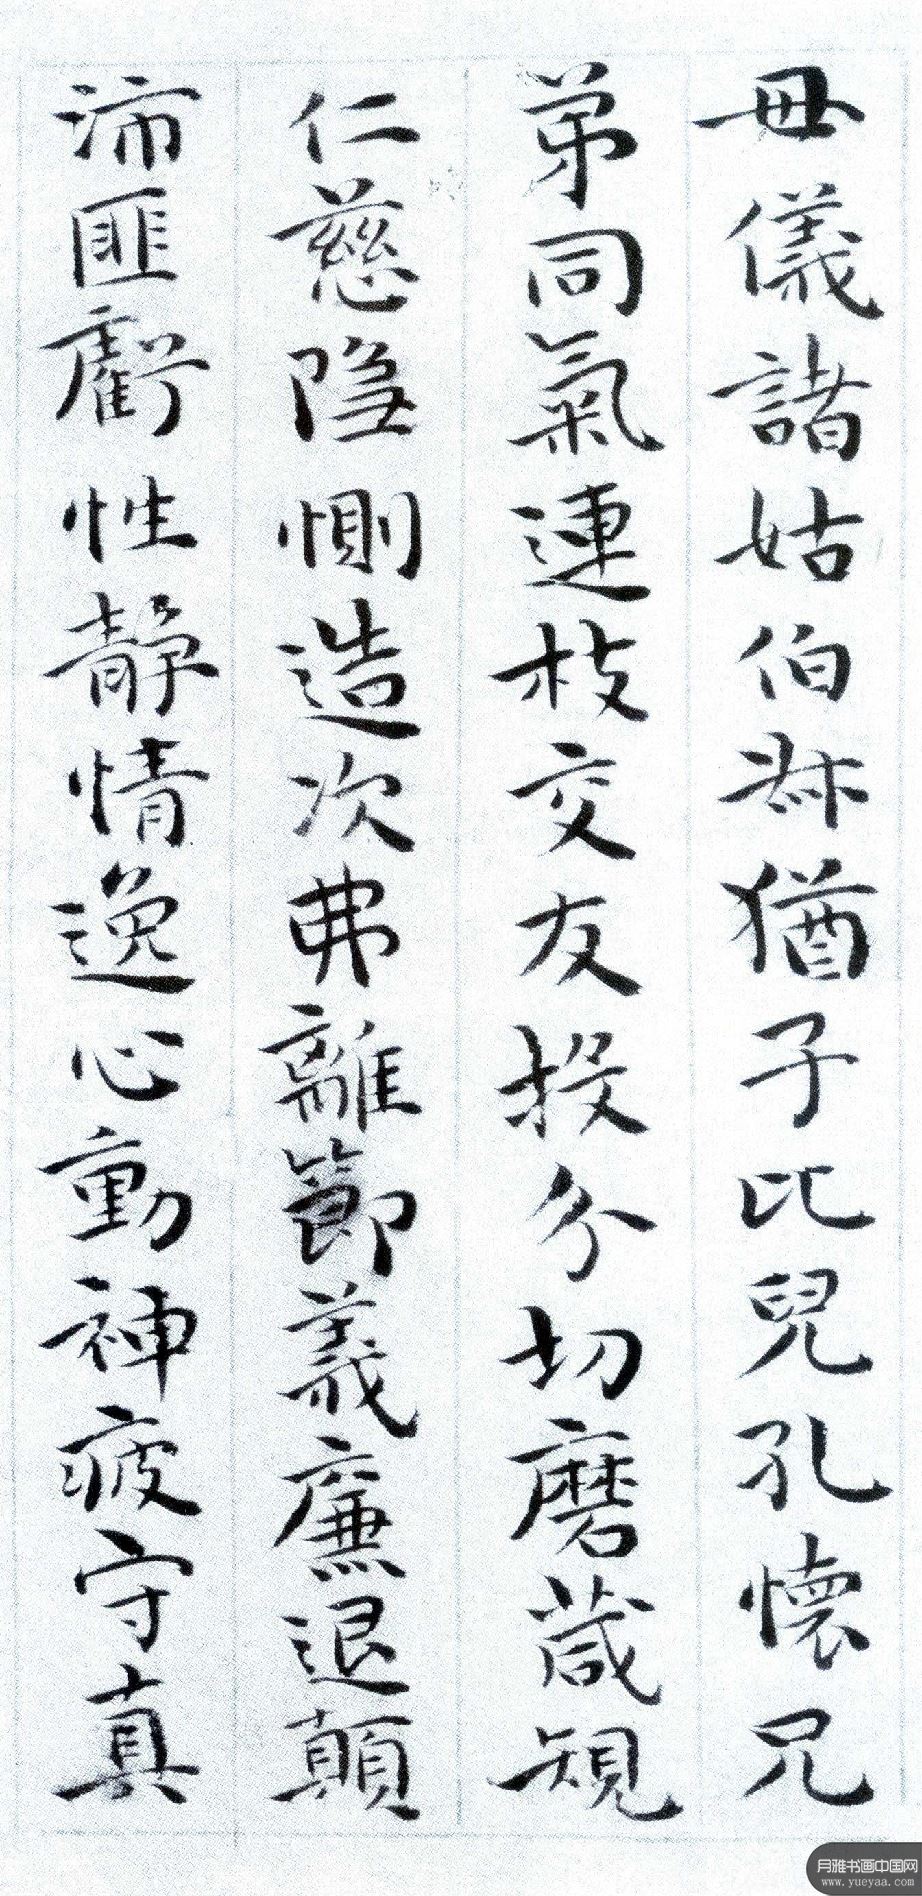 母儀諸姑伯叔猶子比兒孔懷兄
弟同氣連枝交友投分切磨葴規
仁慈隐惻造次弗離節義廉退顛
沛匪虧性靜情逸心動神疲守真
月雅书画中国网
www.yueyaa.com